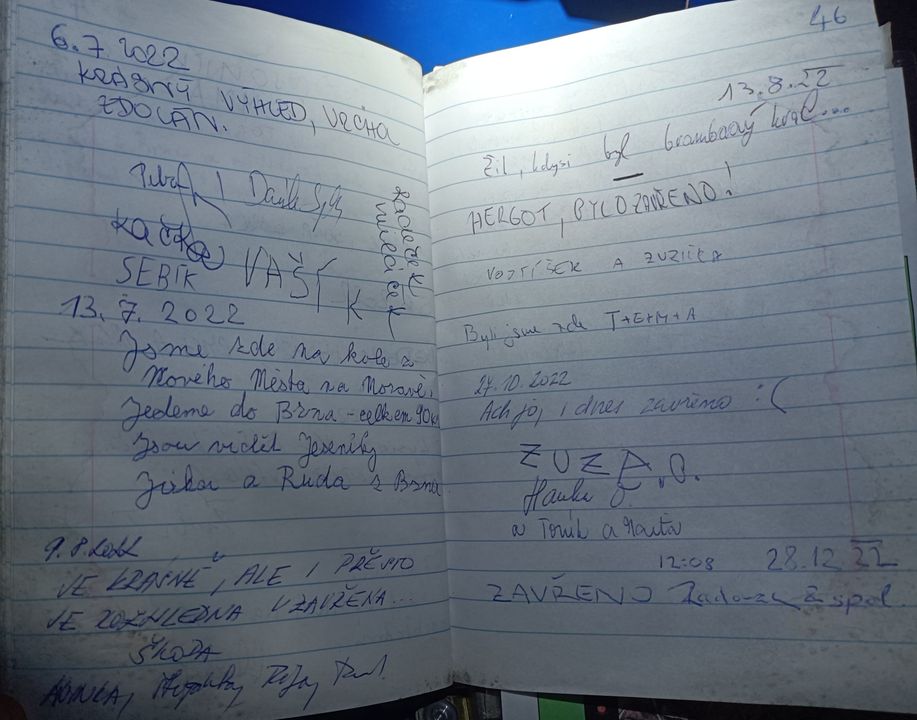 6.7.2022
KRÁSNÝ VÝHLED, VĚCHA
ZDOLÁN.
KAČKA
SEBÍK VAŠÍK
Kadeček
13. 7. 2022
Jsme zde na kole z
Nového Města na Moravě,
Jedeme do Brna - celkem 90km
Jsou vidět Jeseníky
Jirka a Ruda z Brna
9.8.2022
JE KRÁSNĚ, ALE I PŘESTO
JE ROZHLEDNA UZAVŘENA...
ŠKODA
46
13.8.22
Žil, kdysi byl bramborový král...
HERGOT, BYLO ZAVŘENO!
VOJTÍŠEK A ZUZIČKA
Byli jsme zde T+E+M+A
27.10.2022
Ach jo, i dnes zavřeno :(
ZUZA.O.
Hanka J.
a Toník a Marta
12:08 28.12 22
ZAVŘENO & spol.